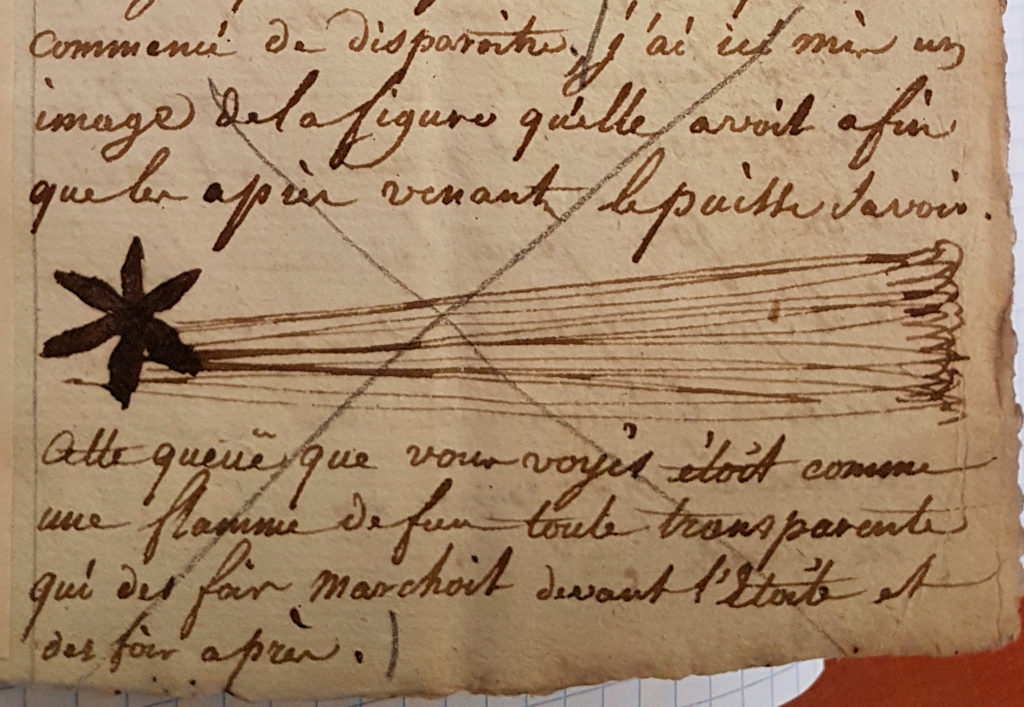 commencé de disparoitre. j'ai ici mis un
image de la figure qu'elle avoit afin
que les après venants le puisse savoir.
Cette queuë que vous voyés étoit comme
une flamme de feu toute transparente
qui des fois marchoit devant l'Etoile et
des fois après.